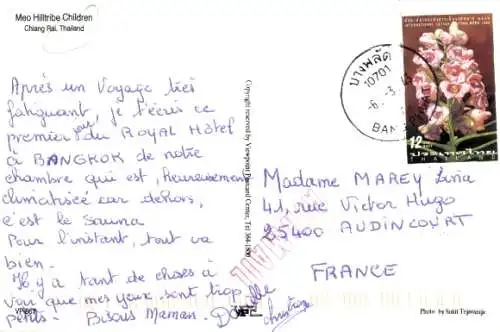 Meo Hilltribe Children
Chiang Rai, Thailand
Après un Voyage très
fatiguant, je t'écris ce
premier jour du ROYAL Hôtel
à BANGKOK de notre
chambre qui est, heureusement
climatisée car dehors,
c'est le Sauna
Pour l'instant, tout va
bien.
Il y a tant de choses à
voir que mes yeux sont trop
petits. Bisous Maman.
Christiane
Copyright reserved by Viewpoint Postcard Centre, Tel
บางพลัด
10701
BANGKOK
12
ประเทศไทย
THAILAND
Madame MAREY Livia
41, rue Victor Hugo
25400 AUDINCOURT
FRANCE
Photo by